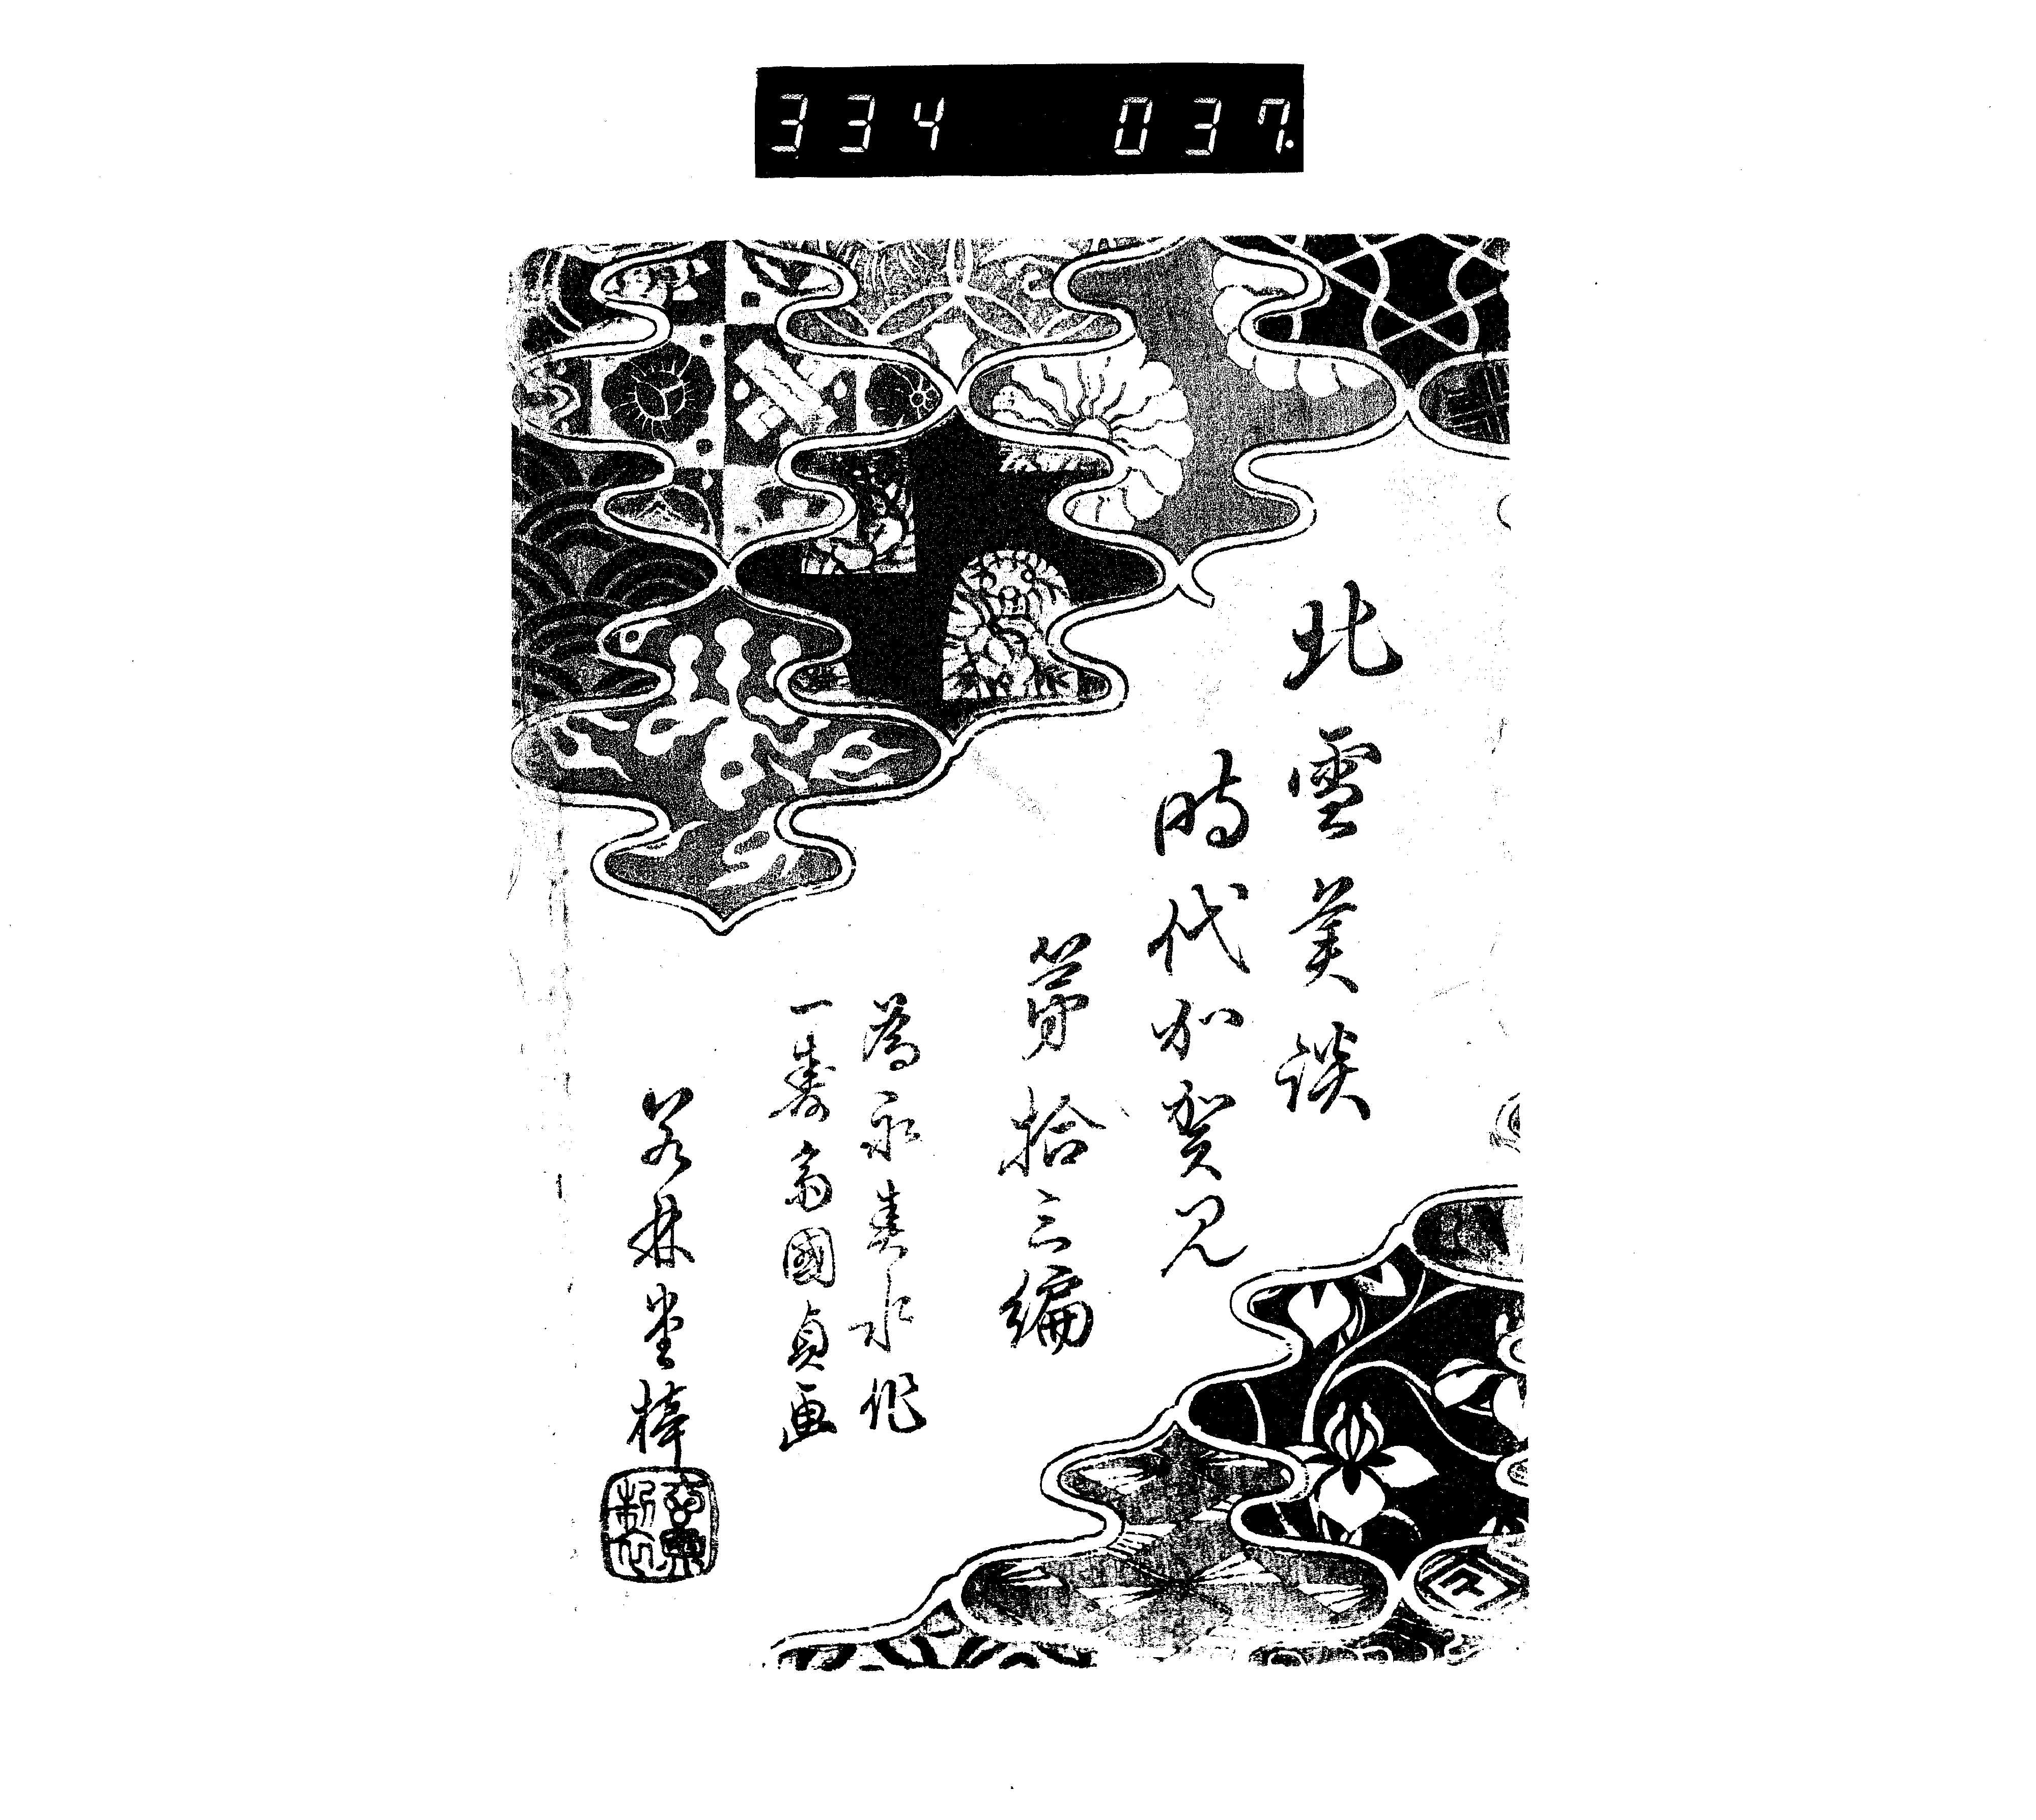 334 037.
北雪美談
時代加賀見
第拾三編
為永春水作
一壽斎國貞画
若林堂梓